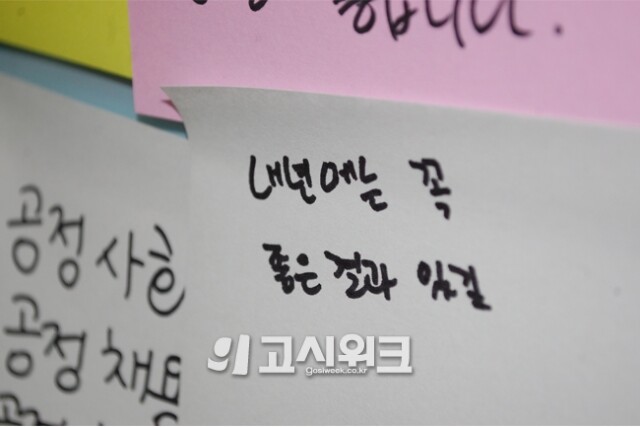 합니다.
내년에는 꼭
좋은 결과 있길
공정사회
공정채용
고시위크
gosiweek.co.kr